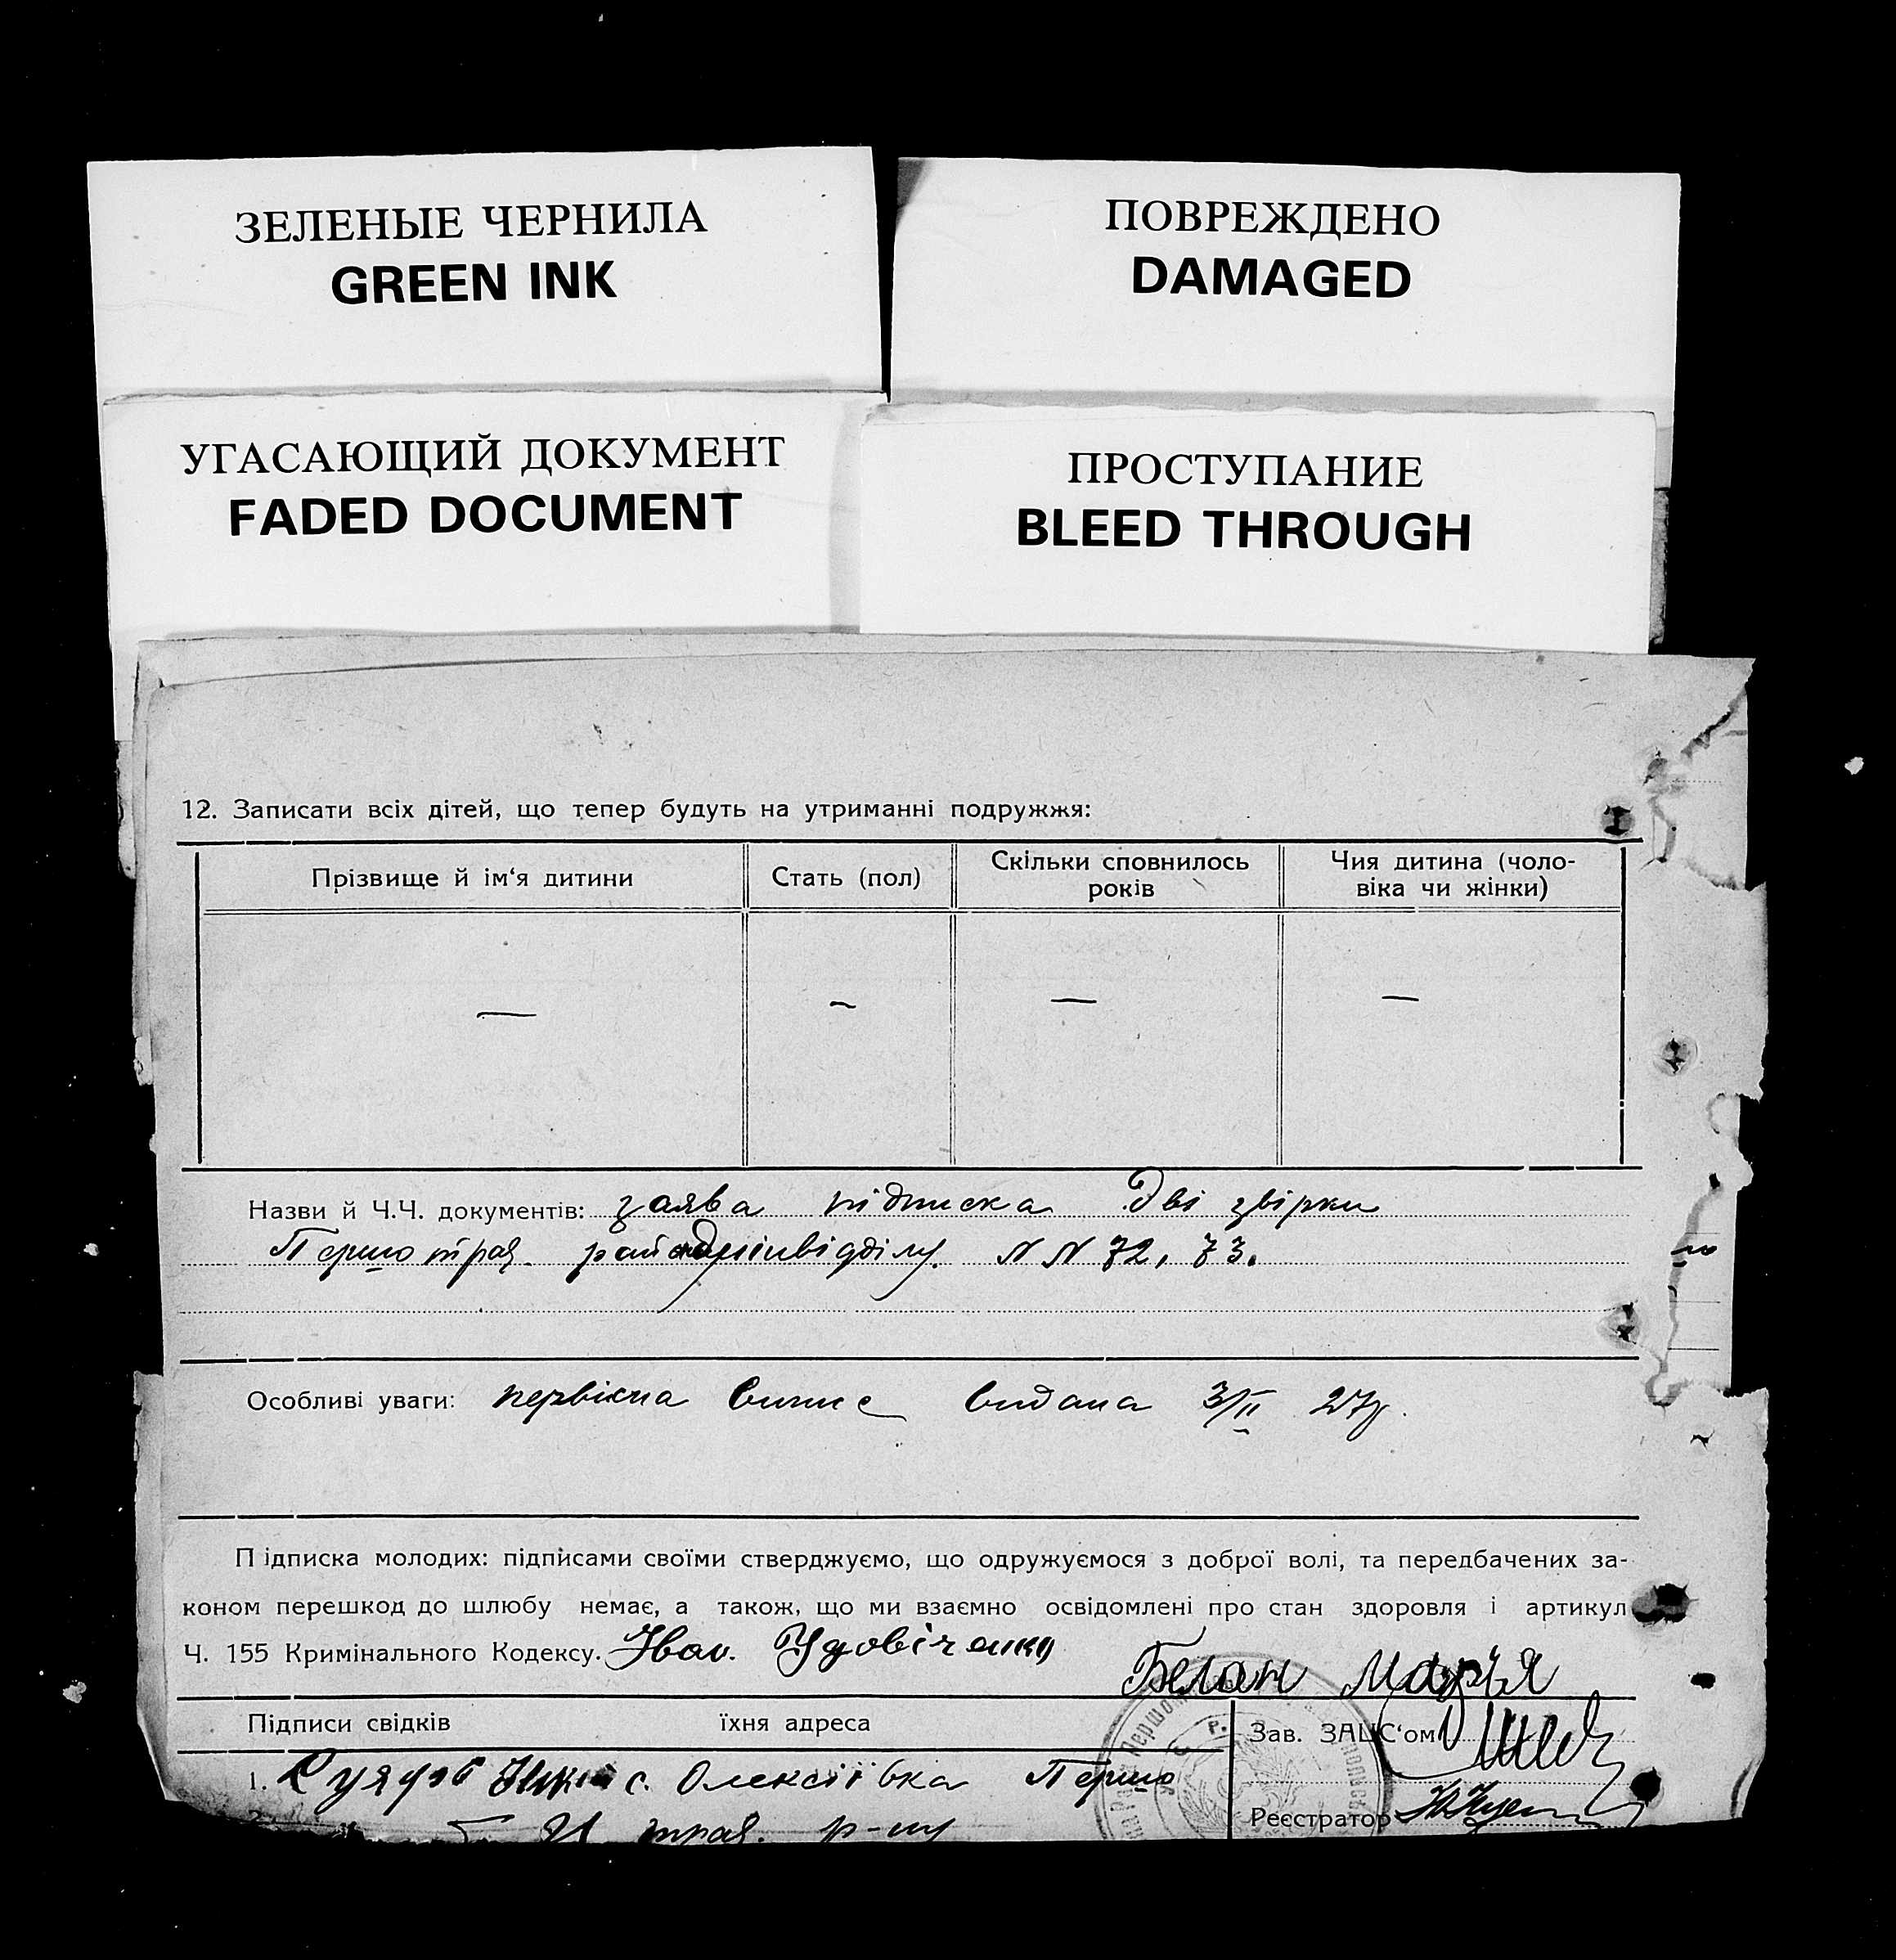 ЗЕЛЕНЫЕ ЧЕРНИЛА
GREEN INK
ПОВРЕЖДЕНО
DAMAGED
УГАСАЮЩИЙ ДОКУМЕНТ
FADED DOCUMENT
ПРОСТУПАНИЕ
BLEED THROUGH
12. Записати всіх дітей, що тепер будуть на утриманні подружжя:
Прізвище й ім‘я дитини
Стать (пол)
Скільки сповнилось
років
Чия дитина (чоло-
віка чи жінки)
— — — —
Назви й Ч.Ч. документів: заява підписка Дві звірки
Першотрав. N N 72, 73.
Особливі уваги: первісна випис видана 3/II 27р.
Підписка молодих: підписами своїми стверджуємо, що одружуємося з доброї волі, та передбачених за-
коном перешкод до шлюбу немає, а також, що ми взаємно освідомлені про стан здоровля і артикул
Ч. 155 Кримінального Кодексу. Іван. Удовіченко
Белан Марія
Підписи свідків їхня адреса
Зав. ЗАЦС‘ом
1. с. Олексіївка Першо
трав. р-ну
Реєстратор